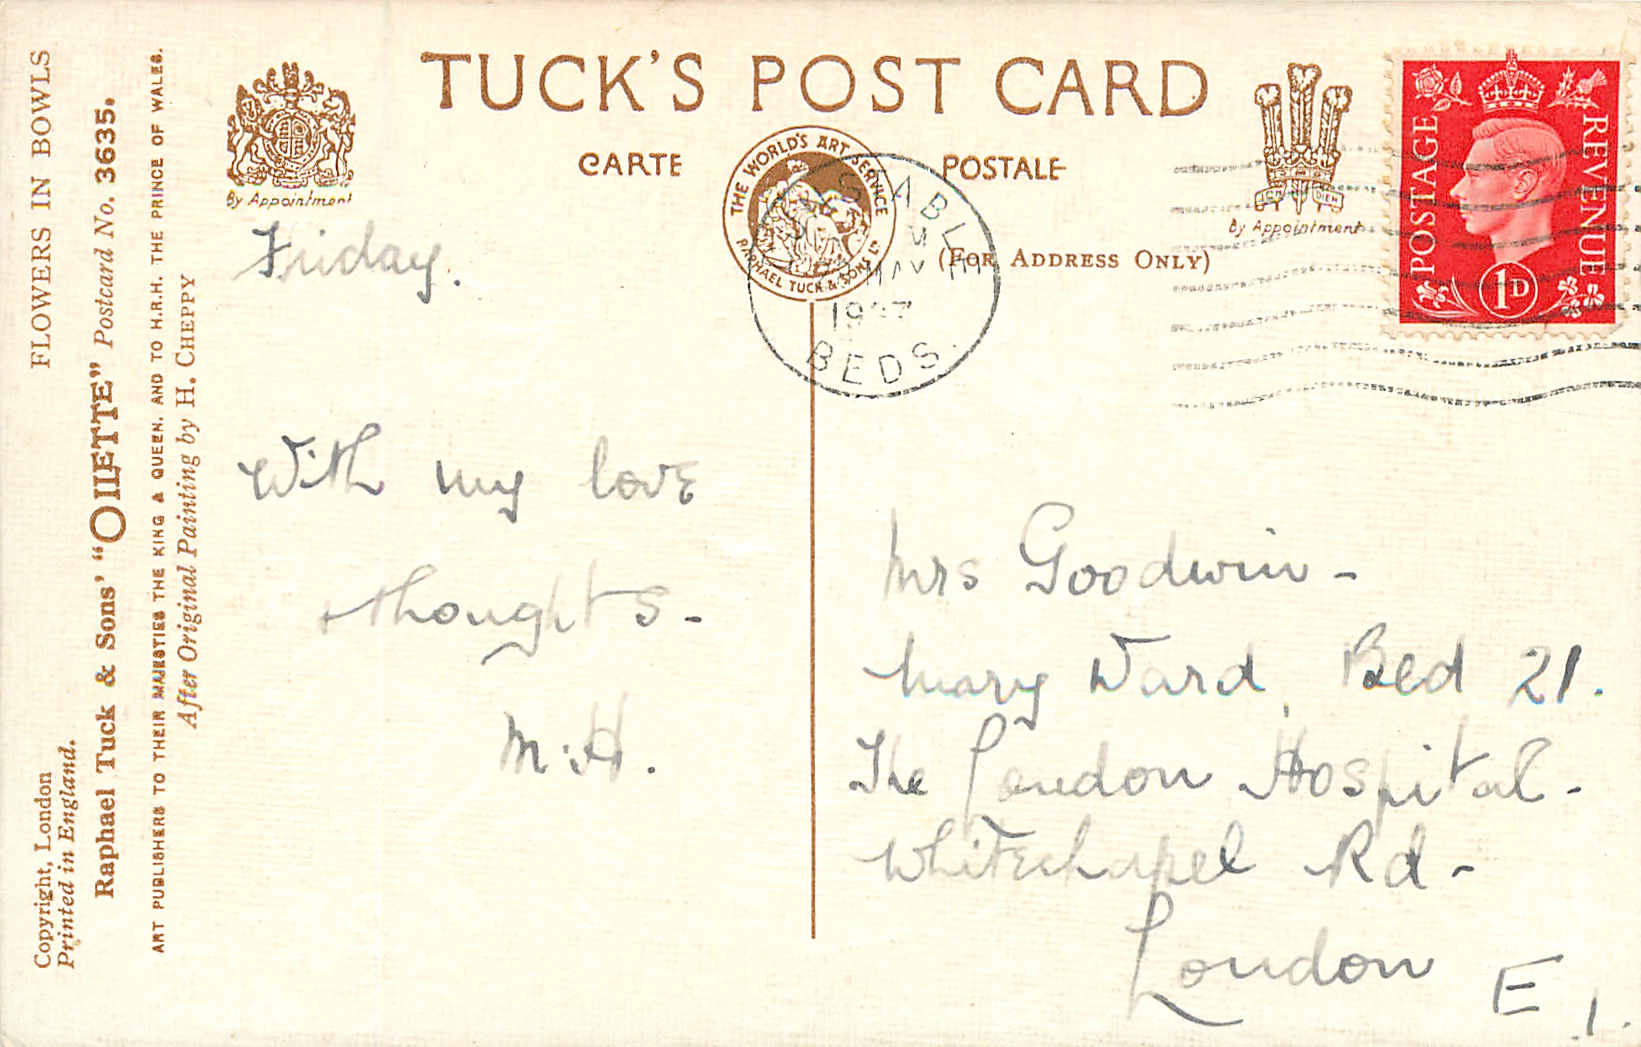 TUCK'S POST CARD
CARTE POSTALE
(FOR ADDRESS ONLY)
By Appointment
By Appointment
THE WORLD'S ART SERVICE
RAPHAEL TUCK & SONS LTD
POSTAGE REVENUE
1D
MAY
1937
BEDS.
FLOWERS IN BOWLS
Copyright, London
Printed in England.
Raphael Tuck & Sons' "OILETTE" Postcard No. 3635.
ART PUBLISHERS TO THEIR MAJESTIES THE KING & QUEEN, AND TO H.R.H. THE PRINCE OF WALES.
After Original Painting by H. CHEPPY
Friday.
With my love
thoughts -
M.H.
Mrs Goodwin -
Mary Ward, Bed 21.
The London Hospital -
Whitechapel Rd -
London E.1.